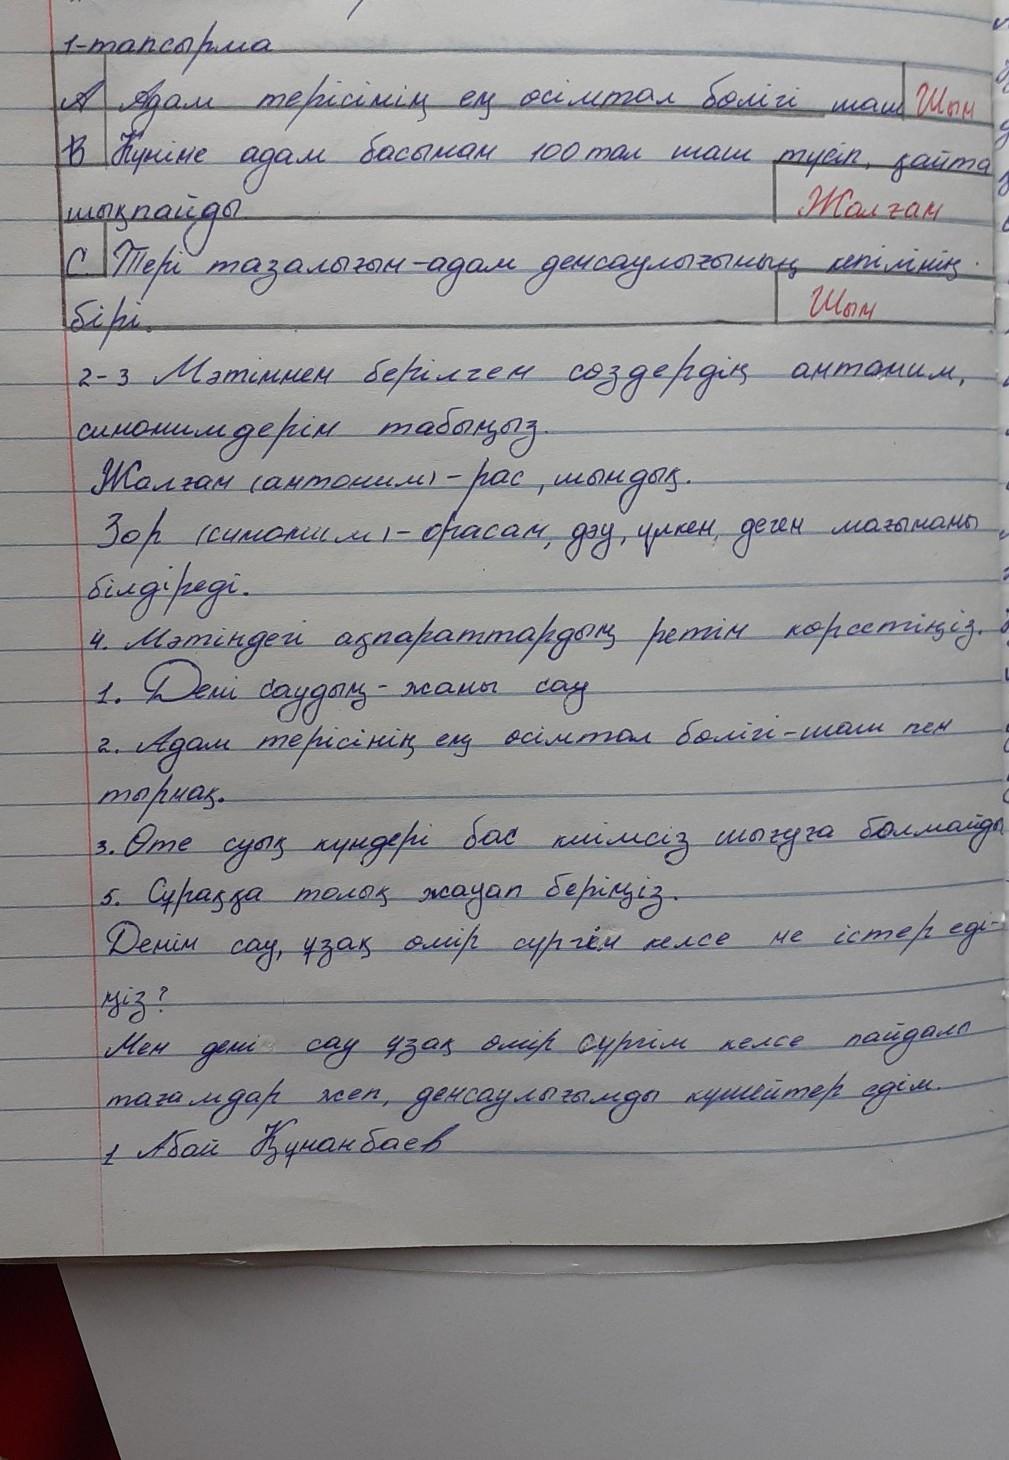 1-тапсырма
А Адам терісінің ең өсімтал бөлігі шаш Шын
В Күніне адам басынан 100 тал шаш түсіп, қайта
шықпайды. Жалған
С. Тері тазалығын-адам денсаулығының кепілінің
бірі. Шын
2-3 Мәтіннен берілген сөздердің антоним,
синонимдерін табыңыз.
Жалған (антоним) - рас, шындық.
Зор (синоним) - орасан, дәу, үлкен, деген мағынаны
білдіреді.
4. Мәтіндегі ақпараттардың ретін көрсетіңіз.
1. Дені саудың - жаны сау
2. Адам терісінің ең өсімтал бөлігі-шаш пен
тырнақ.
3. Өте суық күндері бас киімсіз шығуға болмайды
5. Сұраққа толық жауап беріңіз.
Денін сау, ұзақ өмір сүргін келсе не істер еді-
ңіз?
Мен дені сау ұзақ өмір сүргім келсе пайдалы
тағамдар жеп, денсаулығымды күшейтер едім.
1 Абай Құнанбаев